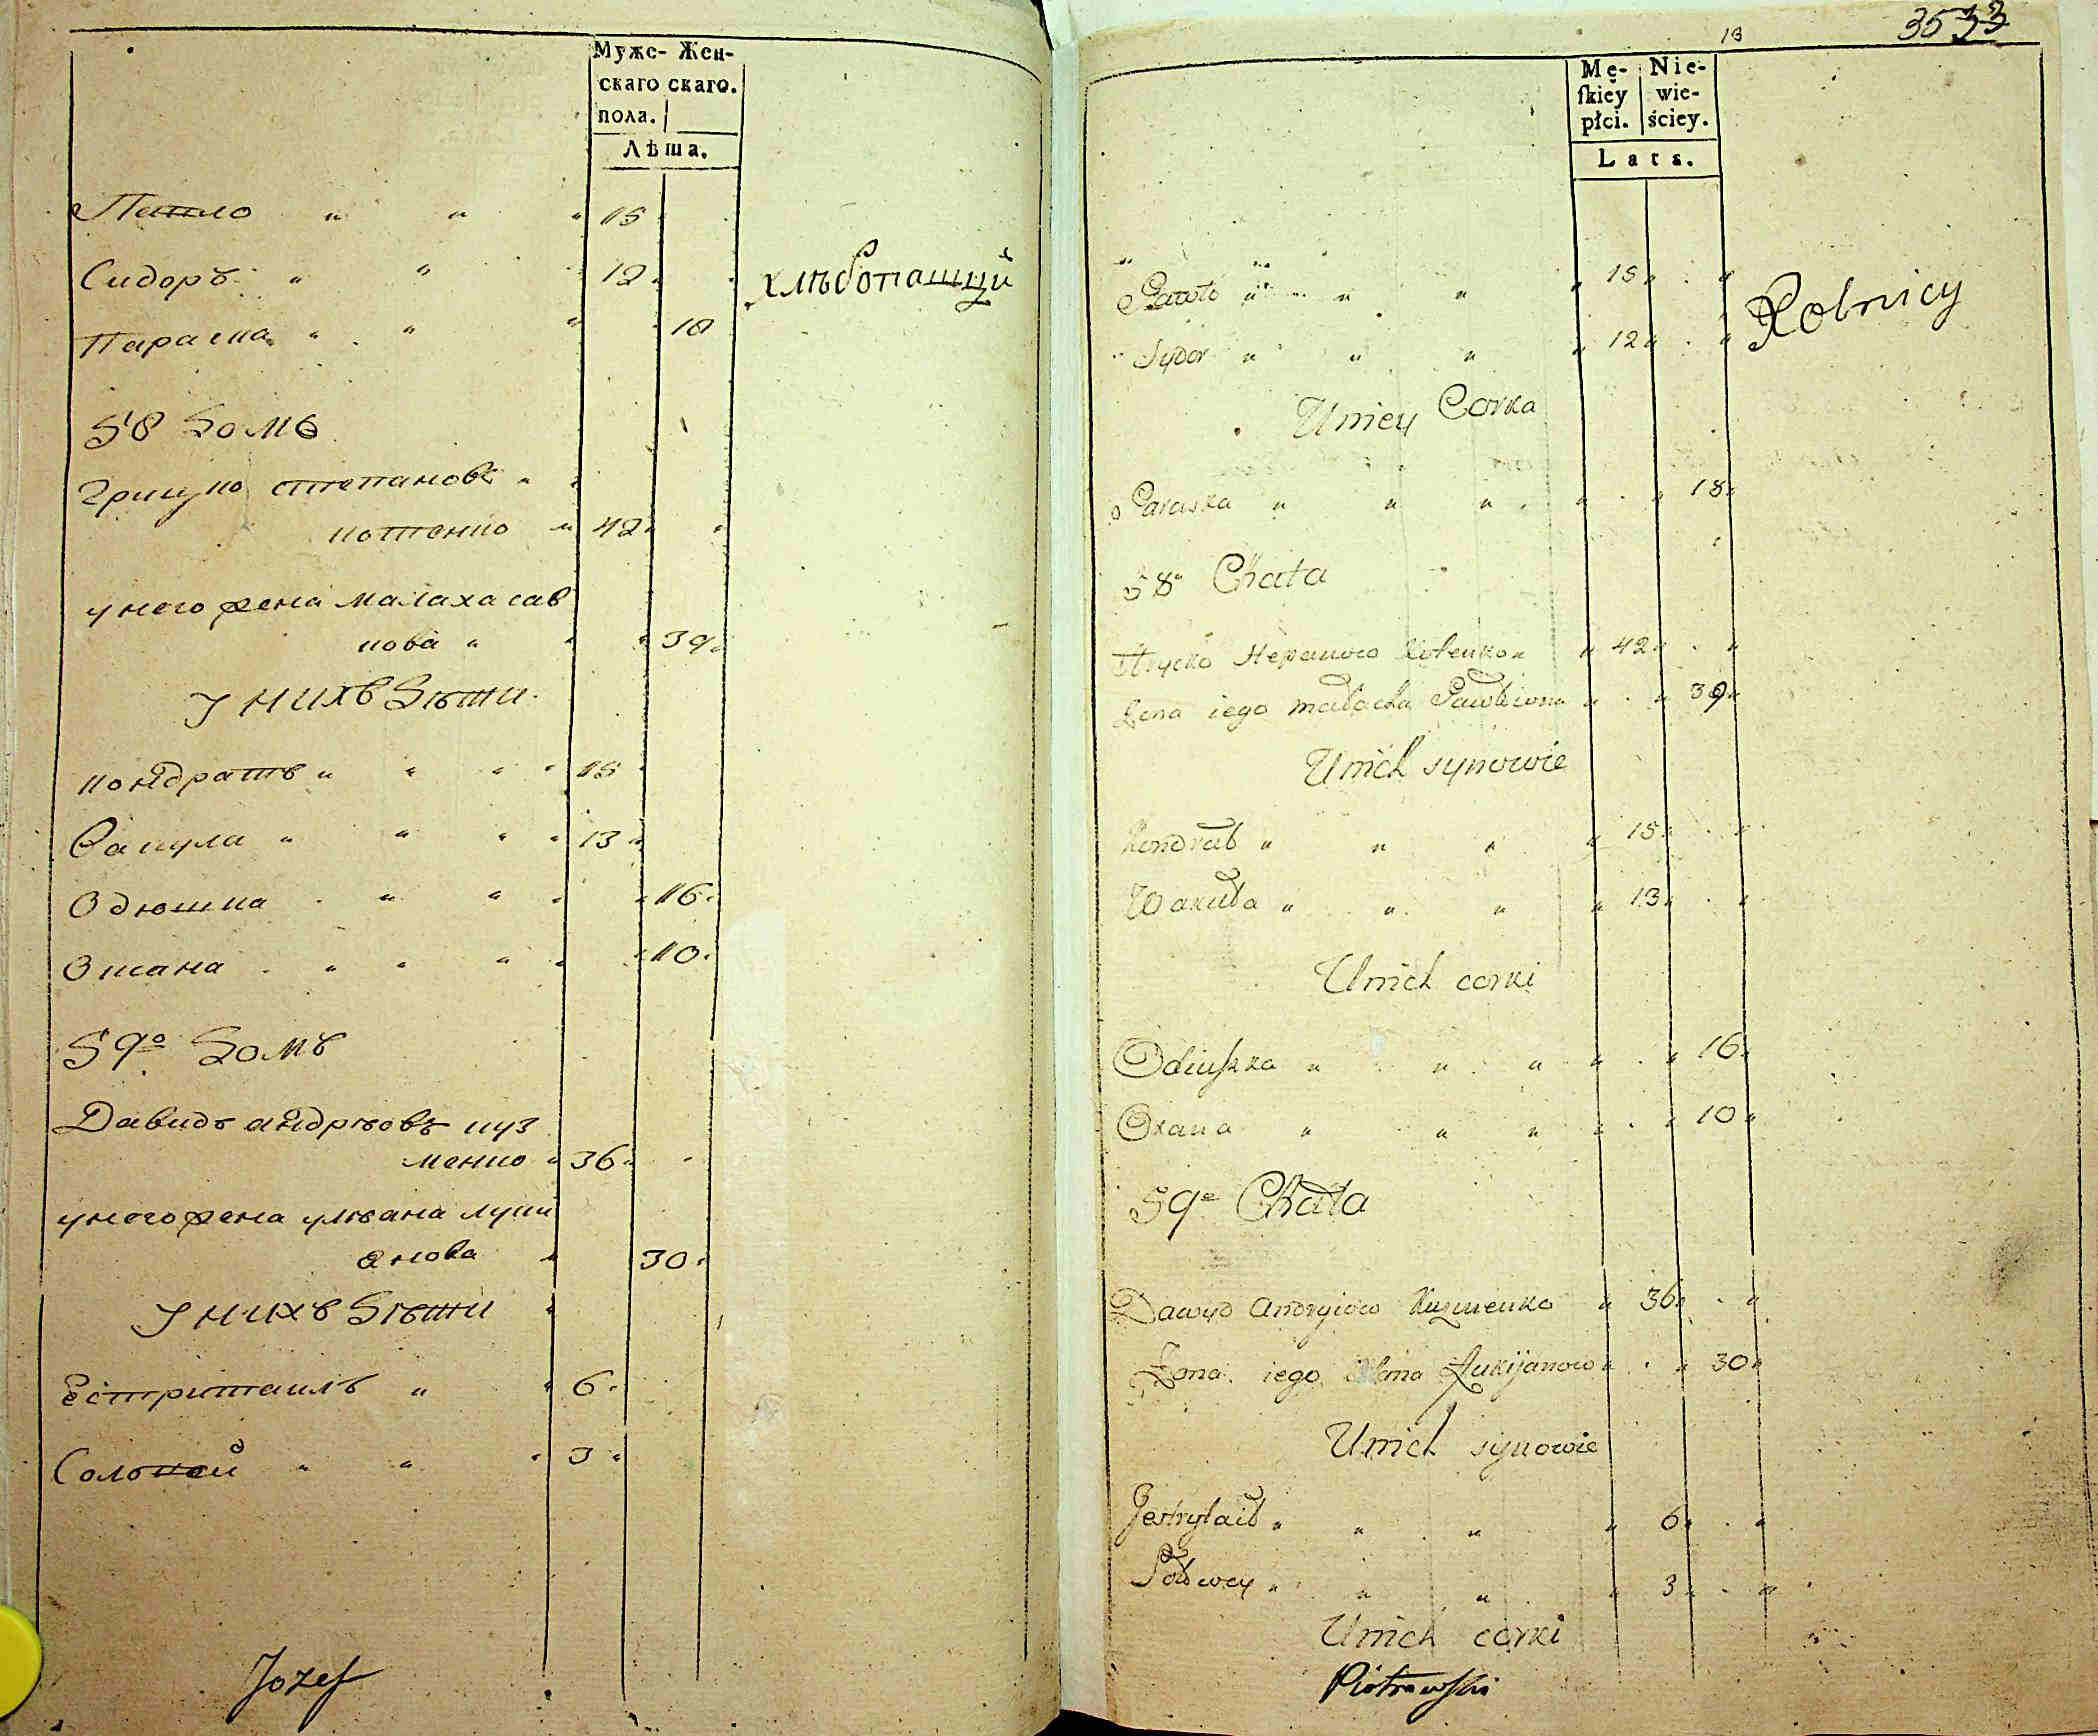 Муже- Жен-
скаго скаго.
пола.
Лѣта.
Павло " " " 15
Сидоръ " " 12
хлѣбопашцй
Параска " " " 18
58 Домъ
Грицко степановъ "
котенко " 42
унего жена малаха сав
кова " " 39
У нихъ Дѣти
кондратъ " " " " 15
Вакула " " " " 13
Одюшка " " " 16
Оксана " " " " 10
59º Домъ
Давидъ андрѣовъ куз
менко " 36
унего жена улѣана луки
анова " 30
У нихъ Дѣти "
Естритаилъ " " 6
Соловей " " " 3
Jozef
13
3533
Mę- Nie-
skiey wie-
płci. ściey.
Lata.
Pawło " " " " 15 "
Sydor " " " " 12 "
Rolnicy
Uniey Corka
Paraska " " " " " 18
58º Chata
Hrycko Stepanow Kotenko " " 42 "
Żona iego małacha Sawkiwna " " 39
Unich synowie
Kondrat " " " " 15 "
Wakuła " " " " 13 "
Unich corki
Odiuszka " " " " " 16
Oxana " " " " " 10
59º Chata
Dawyd Andryiow Kuzmenko " 36 "
Żona iego Lukijanow " " 30
Unich synowie
Jestrytaił " " " " 6 "
Sołowey " " " " 3 "
Unich corki
Piotrowski